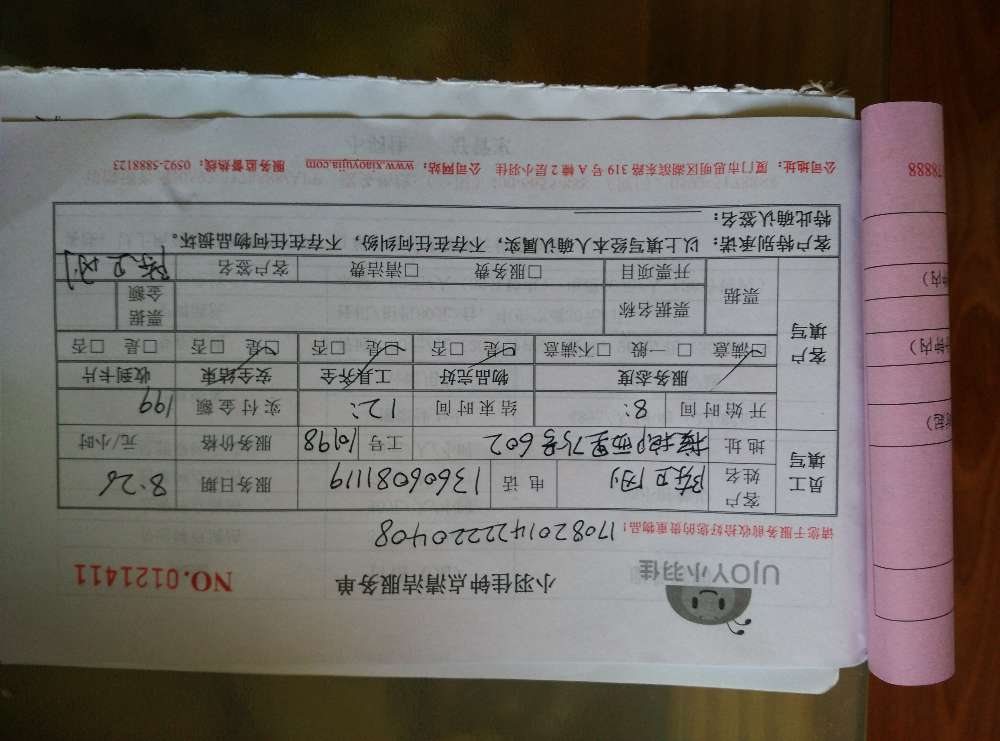 UJOY小羽佳 小羽佳钟点清洁服务单 NO.0121411
请您于服务前收拾好您的贵重物品！ 17082014222220408
员工填写 客户姓名 陈卫刚 电话 13606081119 服务日期 8.26
地址 西里75号602 工号 10198 服务价格 元/小时
开始时间 8: 结束时间 12: 实付金额 199
客户填写 服务态度 物品完好 工具齐全 安全结束 收到卡片
☑满意 □一般 □不满意 ☑是 □否 ☑是 □否 ☑是 □否 □是 □否
票据 票据名称 票据金额
开票项目 □服务费 □清洁费 客户签名 陈卫刚
客户特别承诺：以上填写经本人确认属实，不存在任何纠纷，不存在任何物品损坏。
特此确认签名：
公司地址：厦门市思明区湖滨东路 319 号 A 幢 2 层小羽佳 公司网站：www.xiaoyujia.com 服务监督热线：0592-5888123
78888